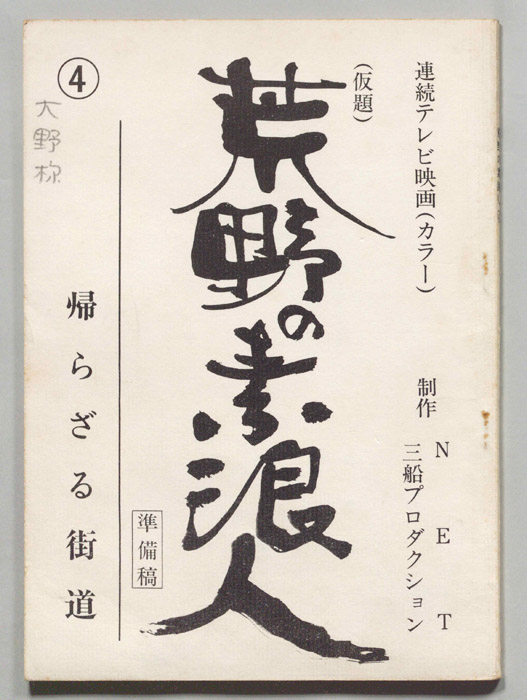 連続テレビ映画(カラー)
制作 NET
三船プロダクション
(仮題)
荒野の素浪人
準備稿
④
帰らざる街道
大野